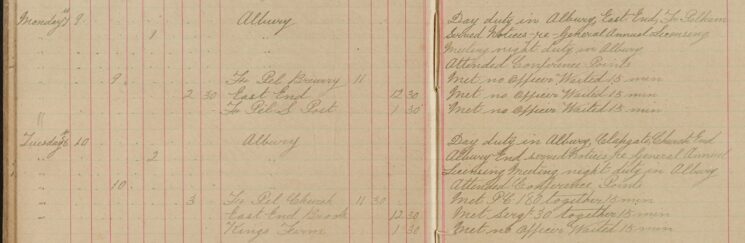 Monday 9 Albury Day duty in Albury, East End, Fx Pelham
1 Served Notices re General Annual Licensing
Meeting night duty in Albury
Attended Conference Points
9 Fx Pel Brewery 11 Met no Officer Waited 15 min
2 30 East End 12 30 Met no Officer Waited 15 min
Fx Pel S Post 1 30 Met no Officer Waited 15 min
Tuesday 10 Albury Day duty in Albury, Clapgate, Church End
2 Albury End served Notices re General Annual
Licensing Meeting night duty in Albury
10 Attended Conference Points
3 Fx Pel Church 11 30 Met PC 180 together 15 min
East End Brook 12 30 Met Sergt 30 together 15 min
Kings Farm 1 30 Met no Officer Waited 15 min